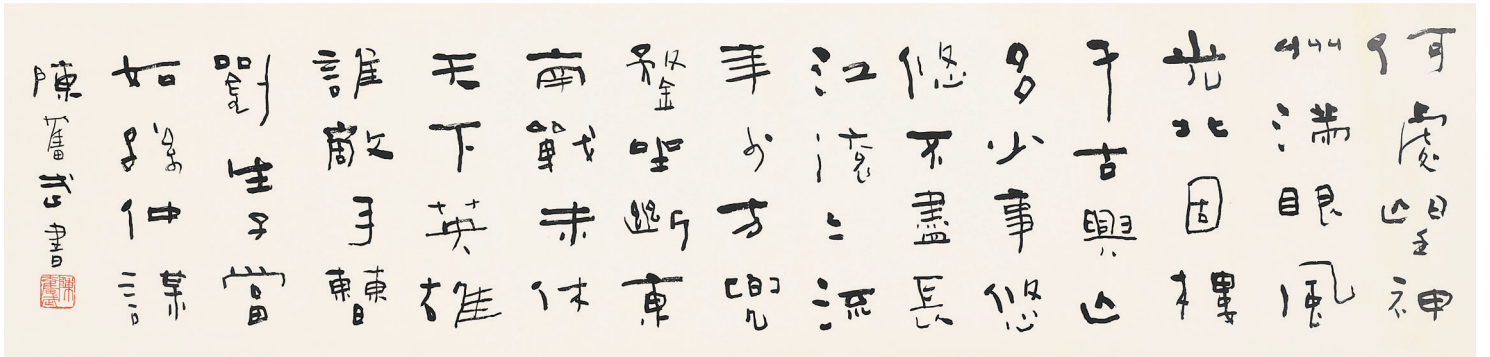 何處望神
州滿眼風
光北固樓
千古興亡
多少事悠
悠不盡長
江滚々流
年少万兜
鍪坐斷東
南戰未休
天下英雄
誰敵手曹
劉生子當
如孫仲謀
陳奮武書
陳奮武